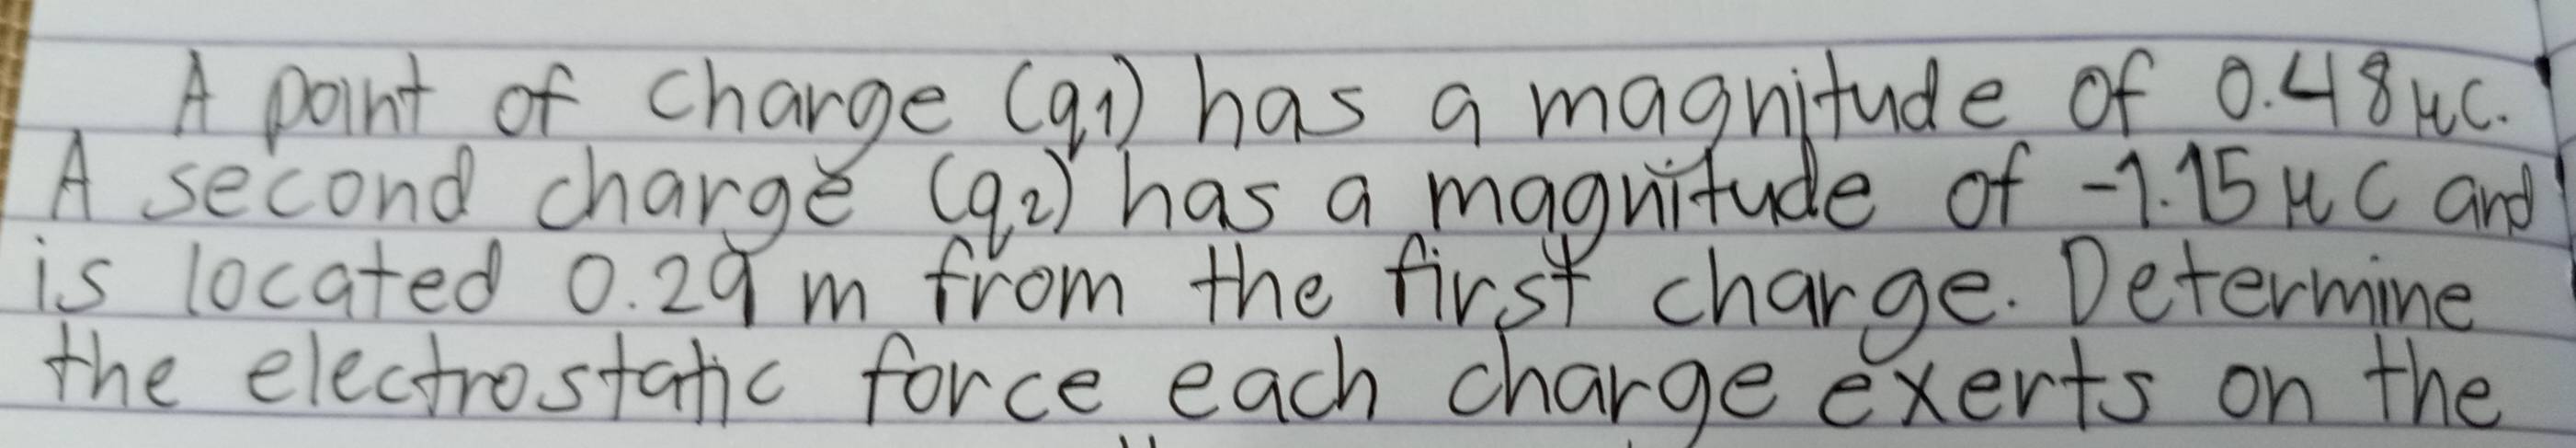 A point of charge (q1) has a magnitude of 0.48 μC.
A second charge (q2) has a magnitude of -1.15 μC and
is located 0.29 m from the first charge. Determine
the electrostatic force each charge exerts on the